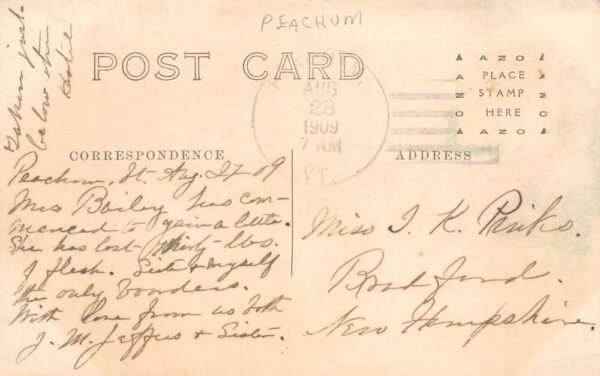 PEACHUM
Taken just
below the
POST CARD
AUG
28
1909
7 AM
VT.
AZO
PLACE
STAMP
HERE
AZO
CORRESPONDENCE
ADDRESS
Peachum, Vt. Aug. 27-09
Mrs Bailey has com-
menced to gain a little.
She has lost thirty-lbs.
of flesh. Sister & myself
the only boarders.
With love from us both
J. M. Jeffers & Sister.
Miss I. K.
Bradford.
New Hampshire.